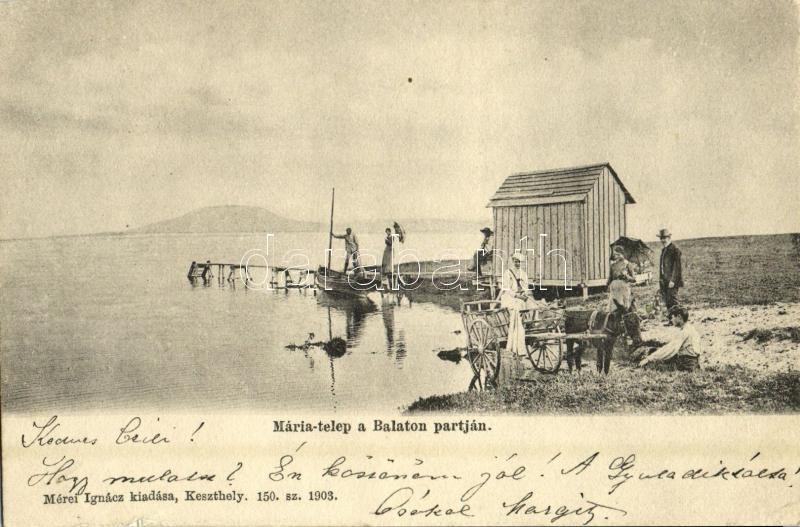 darabanth
Mária-telep a Balaton partján.
Kedves Czili!
Hogy mulatsz? Én köszönöm jól! A
Mérei Ignácz kiadása, Keszthely. 150. sz. 1903.
Csókol Margit